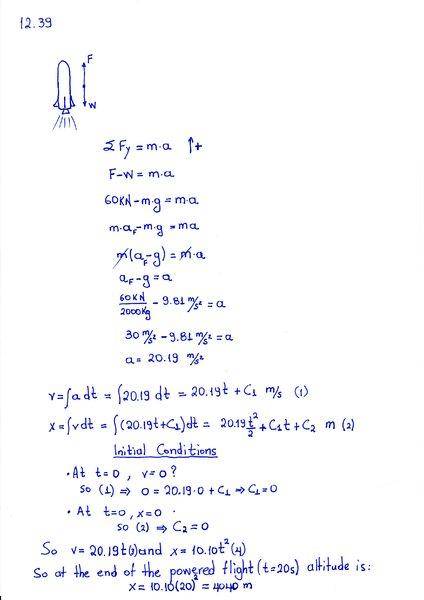 12.39
F
W
ΣFy = m·a ↑+
F-W = m·a
60KN - m·g = m·a
m·a_F - m·g = ma
m(a_F - g) = m·a
a_F - g = a
60KN/2000Kg - 9.81 m/s² = a
30 m/s² - 9.81 m/s² = a
a = 20.19 m/s²
v = ∫a dt = ∫20.19 dt = 20.19t + C₁ m/s (1)
x = ∫vdt = ∫(20.19t + C₁)dt = 20.19 t²/2 + C₁t + C₂ m (2)
Initial Conditions
· At t=0, v=0?
so (1) ⇒ 0 = 20.19·0 + C₁ ⇒ C₁=0
· At t=0, x=0 ·
so (2) ⇒ C₂=0
So v = 20.19t(3) and x = 10.10t² (4)
So at the end of the powered flight (t=20s) altitude is:
x = 10.10(20)² = 4040 m